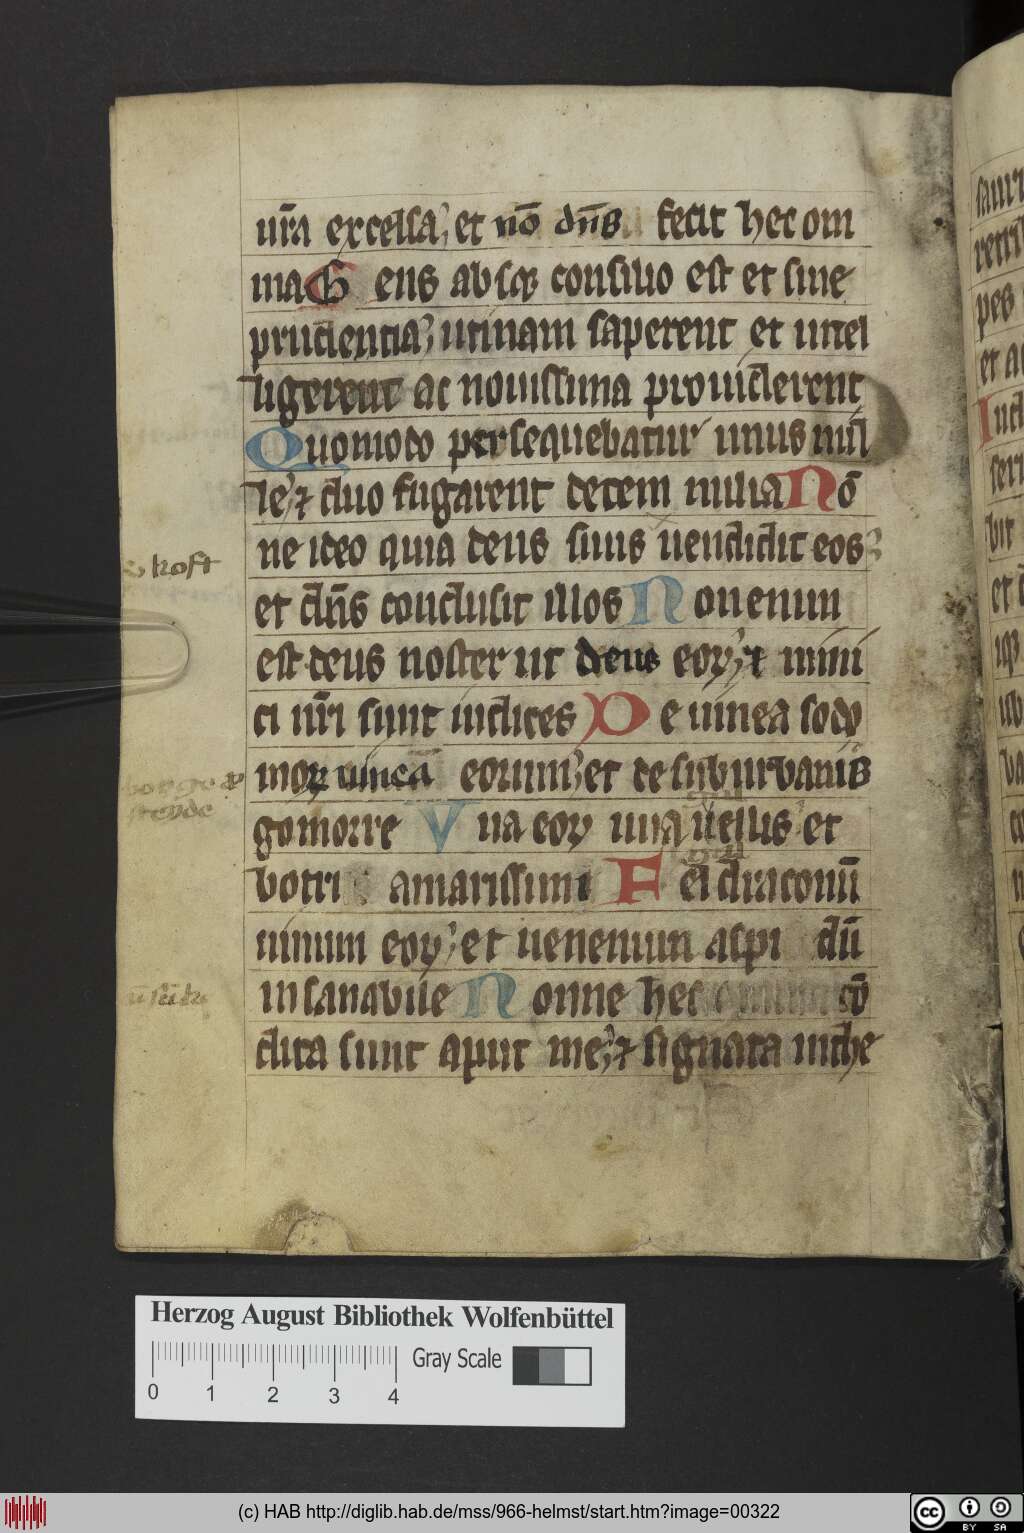 ur̄a excelsa, et nō dn̄s fecit hec om
nia Gens absqꝫ consilio est et sine
prudentia, utinam saperent et intel
ligerent ac novissima providerent
Quomodo persequebatur unus mil
le, ⁊ duo fugarent decem milia Nō
ne ideo quia deus suus vendidit eos
et dn̄s conclusit illos Non enim
est deus noster ut deus eoꝝ, ⁊ inimi
ci nr̄i sunt iudices De vinea sodo
moꝝ vinea eorum, et de suburbaniis
gomorre Uva eoꝝ uva fellis et
botri amarissimi Fel draconū
vinum eoꝝ, et venenum aspi dū
insanabile Nonne hec cō
dita sunt aput me, ⁊ signata in the
kost
Herzog August Bibliothek Wolfenbüttel
Gray Scale
0 1 2 3 4
(c) HAB http://diglib.hab.de/mss/966-helmst/start.htm?image=00322
cc BY SA